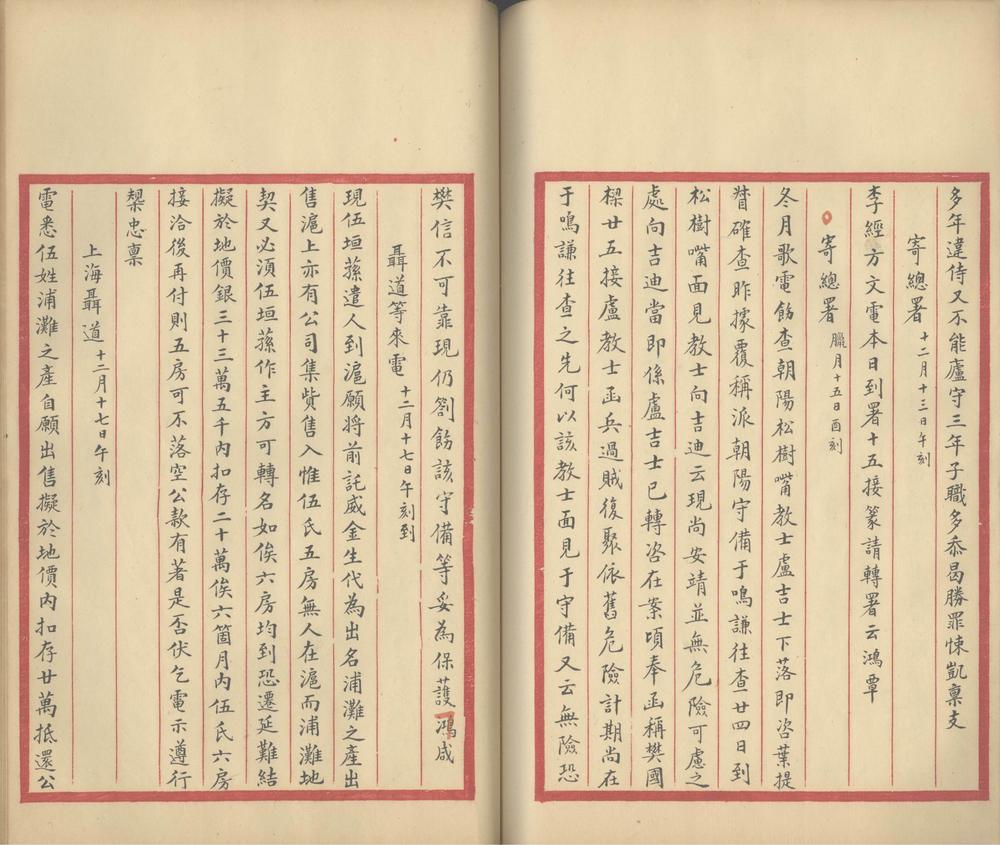 多年違侍又不能廬守三年子職多忝曷勝罪悚凱稟支
寄總署十二月十三日午刻
李經方文電本日到署十五接篆請轉署云鴻覃
寄總署臘月十五日酉刻
冬月歌電飭查朝陽松樹嘴教士盧吉士下落即咨葉提
督確查昨據覆稱派朝陽守備于鳴謙往查廿四日到
松樹嘴面見教士向吉迪云現尚安靖並無危險可慮之
處向吉迪當即係盧吉士已轉咨在案頃奉函稱樊國
樑廿五接盧教士函兵過賊復聚依舊危險計期尚在
于鳴謙往查之先何以該教士面見于守備又云無險恐
樊信不可靠現仍劄飭該守備等妥為保護鴻咸
聶道等來電十二月十七日午刻到
現伍垣蓀遣人到滬願將前託威金生代為出名浦灘之產出
售滬上亦有公司集貲售入惟伍氏五房無人在滬而浦灘地
契又必須伍垣蓀作主方可轉名如俟六房均到恐遷延難結
擬於地價銀三十三萬五千內扣存二十萬俟六箇月內伍氏六房
接洽後再付則五房可不落空公款有著是否伏乞電示遵行
槼忠稟
上海聶道十二月十七日午刻
電悉伍姓浦灘之產自願出售擬於地價內扣存廿萬抵還公